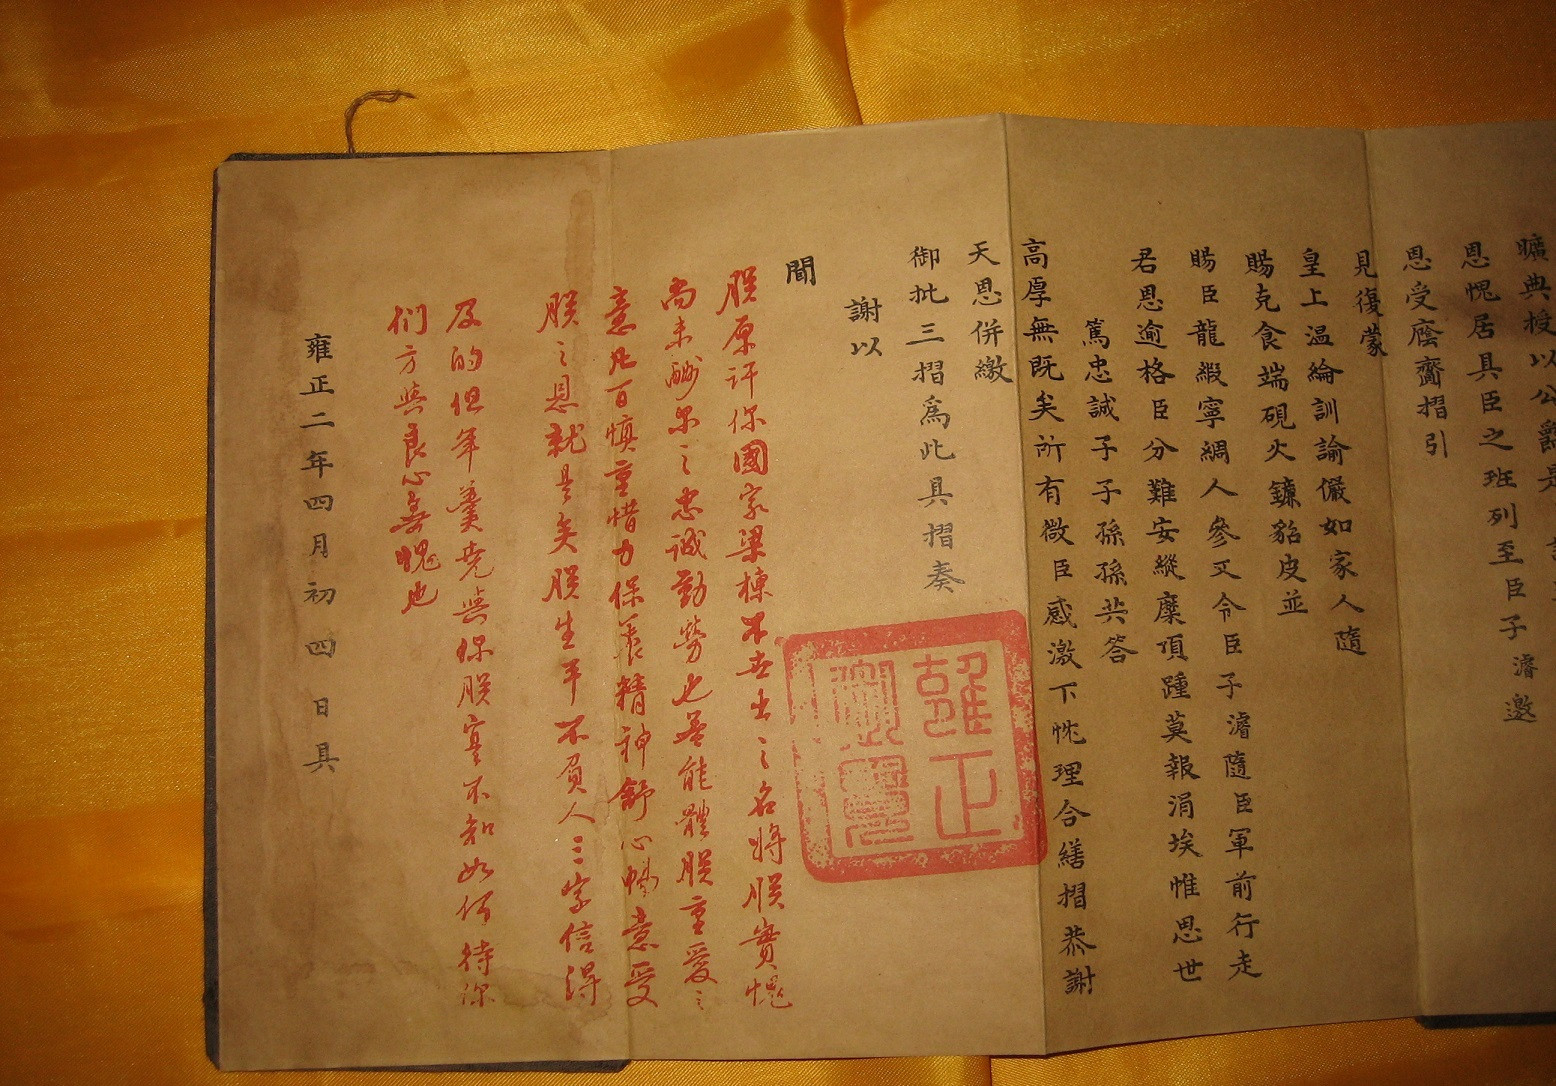 曠典授以公爵是
恩愧居具臣之班列至臣子濬邀
恩受廕齎摺引
見復蒙
皇上温綸訓諭儼如家人隨
賜克食端硯火鐮貂皮並
賜臣龍緞寧綢人參又令臣子濬隨臣軍前行走
君恩逾格臣分難安縱糜頂踵莫報涓埃惟思世
篤忠誠子子孫孫共答
高厚無既矣所有微臣感激下忱理合繕摺恭謝
天恩併繳
御批三摺爲此具摺奏
謝以
聞
雍正
御覽
朕原许你國家梁棟不世出之名將朕實愧
尚未酬尔之忠诚勤劳也若能體朕重愛之
意凡百慎重惜力保養精神舒心暢意受
朕之恩就是矣朕生平不負人三字信得
及的但年羹尭與你朕实不知如何待你
们方與良心無愧也
雍正二年四月初四日具